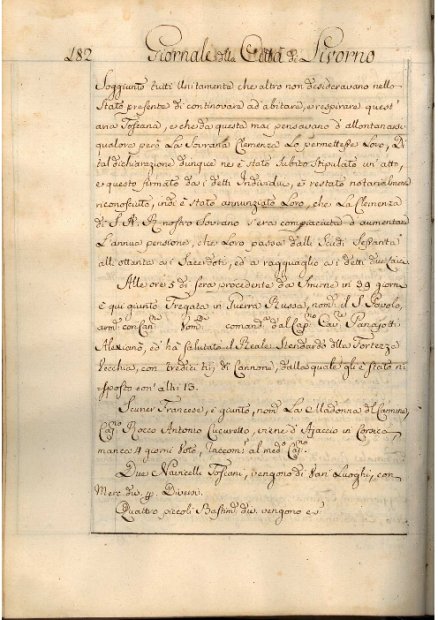 182 Giornale della Città di Livorno
Soggiunto tutti Unitamente che altro non desideravano nello
Stato presente di continovare ad abitare, e respirare quest'
aria Toscana, e che da questa mai pensavano d'allontanarsi
qualora però La Sovrana Clemenza Lo permettesse Loro, Di
tal dichiarazione dunque ne è stato Subito Stipulato un'atto,
e questo firmato da i detti Individui, è restato notarialmente
riconosciuto, indi è stato annunziato Loro, che La Clemenza
di S. A. R. nostro Sovrano s'era compiaciuta d'aumentare
L'annua pensione, che Loro passa dalli Scudi Sessanta
alli ottanta ai Sacerdoti, ed a ragguaglio a i detti
Alle ore 5 di sera procedente da Smirne in 39 giorni
è qui giunto Fregata in Guerra Russa, nom. il S. Paolo,
arm. con Can. Uom. comand. dal Cap.no Cav. Panajotti
Alexiano, ed ha salutato il Reale Stendardo della Fortezza
Vecchia, con tredici tiri di Cannone, dalla quale gli è stato ri
sposto con altri 13.
Scuner Francese, è giunto, nom. La Madonna del Carmine,
Cap.no Rocco Antonio Cucuretto, viene d'Ajaccio in Corsica
manca 4 giorni Voto, Raccom. al med.o Cap.no
Due Navicelli Toscani, vengono di Vari Luoghi, con
Merc. div. p. Diversi.
Quattro piccoli Bastim. div. vengono e s